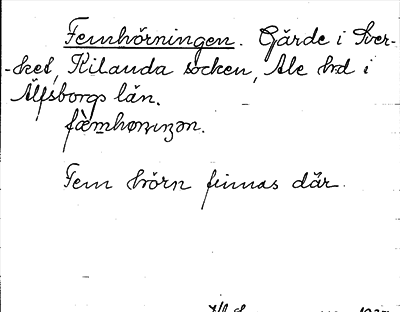 Femhörningen. Gärde i Sver-
-ket, Kilanda socken, Ale hd i
Älfsborgs län.
fæ̀mhønıŋən.
Fem hörn finnas där.